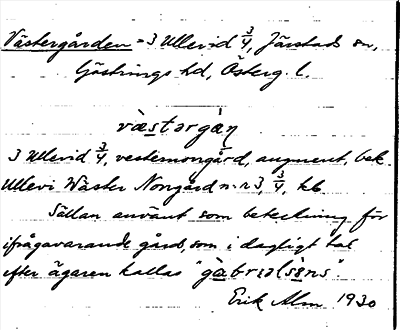 Västergården = 3 Ullevid 3/4, Järstads sn,
Göstrings hd, Österg. l.
væstərgàņ
3 Ullevid 3/4, vesternorrgård, augment, bek.
Ullevi Wäster Norrgård n:r 3, 3/4, kb
Sällan använt som beteckning för
ifrågavarande gård, som i dagligt tal
efter ägaren kallas "gàbriəlsə̀ns".
Erik Alm 1930